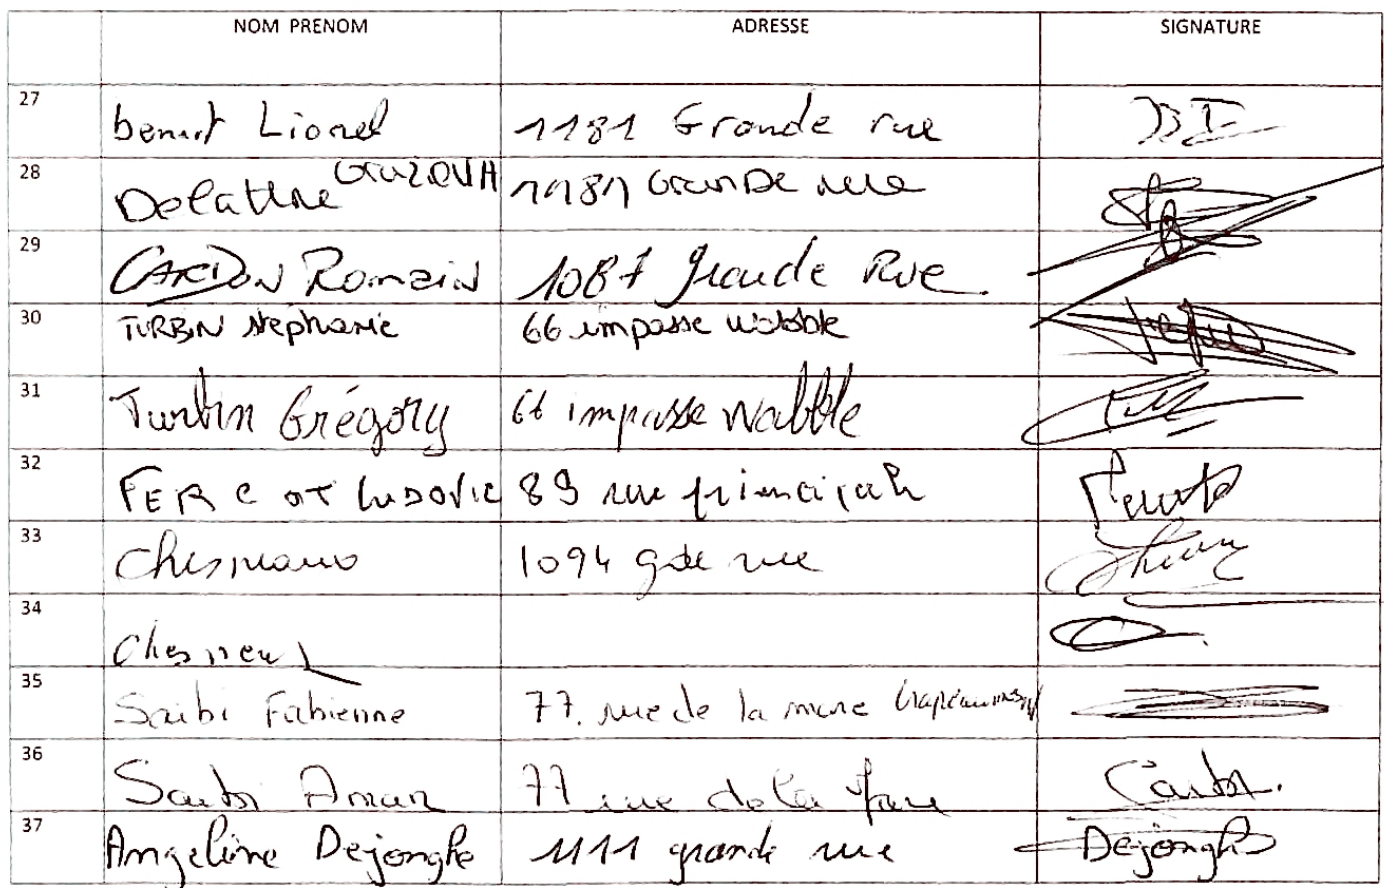 NOM PRENOM ADRESSE SIGNATURE
27 benut Lionel 1181 Grande rue
28 Delattre 1181 Grande rue
29 CARDON Romain 1087 grande Rue
30 TURBIN stephanie 66 impasse wabble
31 Turbin Grégory 66 impasse Wabble
32 FERCOT LUDOVIC 89 rue principale
33 1094 gde rue
34
35 Saibi Fabienne 77, rue de la mare
36 Saibi Amar 77 rue de la
37 Angeline Dejonghe 1111 grande rue Dejonghe